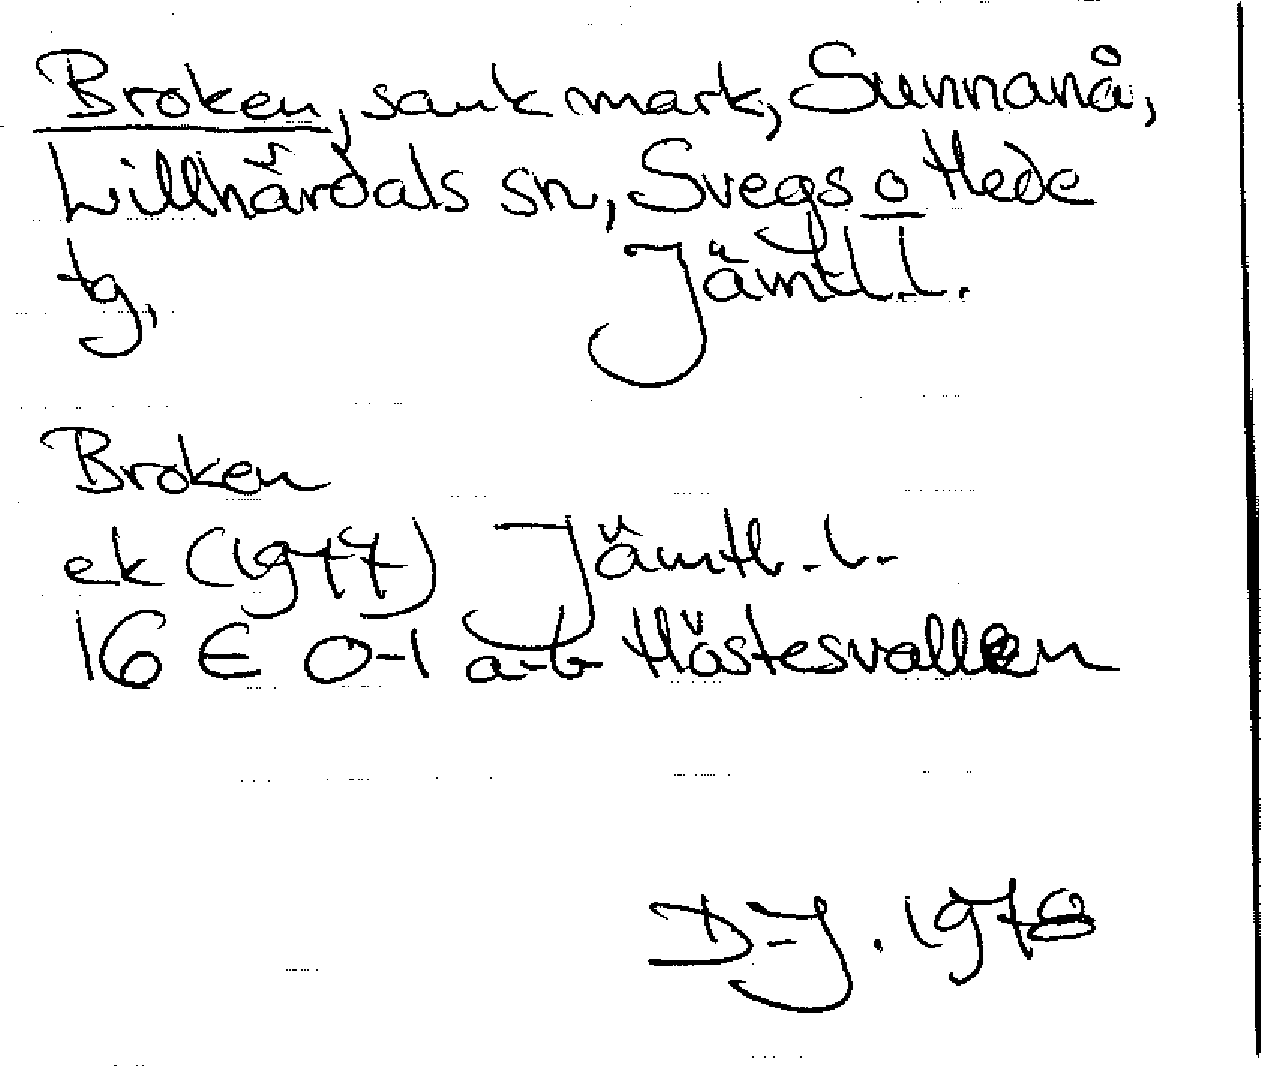 Broken, sank mark, Sunnanå,
Lillhärdals sn, Svegs o Hede
tg, Jämtl. l.
Broken
ek (1977) Jämtl. l.
16 E 0-1 a-b Höstesvallen
D-J. 1978